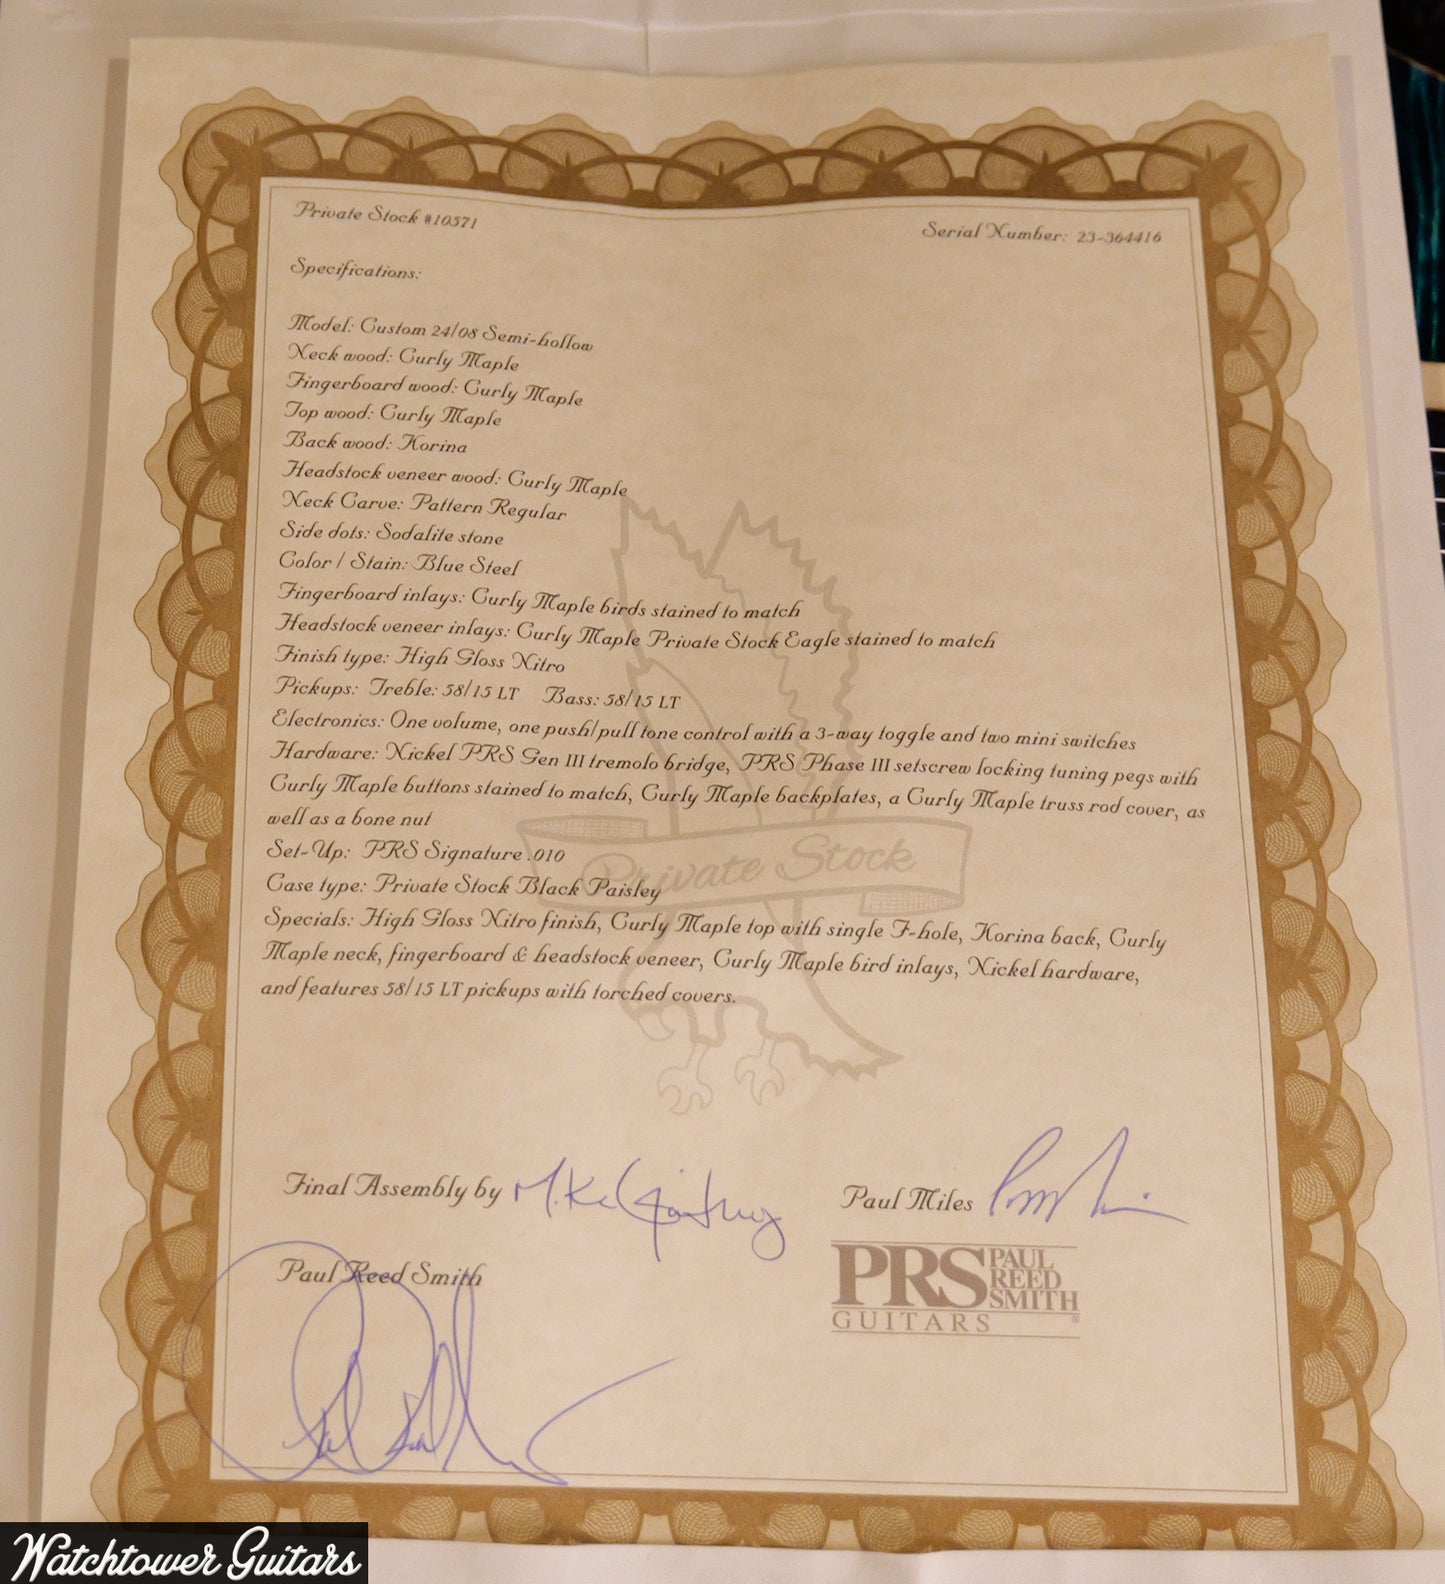 Private Stock #10571
Serial Number: 23-364416
Specifications:
Model: Custom 24/08 Semi-hollow
Neck wood: Curly Maple
Fingerboard wood: Curly Maple
Top wood: Curly Maple
Back wood: Korina
Headstock veneer wood: Curly Maple
Neck Carve: Pattern Regular
Side dots: Sodalite stone
Color / Stain: Blue Steel
Fingerboard inlays: Curly Maple birds stained to match
Headstock veneer inlays: Curly Maple Private Stock Eagle stained to match
Finish type: High Gloss Nitro
Pickups: Treble: 58/15 LT Bass: 58/15 LT
Electronics: One volume, one push/pull tone control with a 3-way toggle and two mini switches
Hardware: Nickel PRS Gen III tremolo bridge, PRS Phase III setscrew locking tuning pegs with
Curly Maple buttons stained to match, Curly Maple backplates, a Curly Maple truss rod cover, as
well as a bone nut
Set-Up: PRS Signature .010
Private Stock
Case type: Private Stock Black Paisley
Specials: High Gloss Nitro finish, Curly Maple top with single F-hole, Korina back, Curly
Maple neck, fingerboard & headstock veneer, Curly Maple bird inlays, Nickel hardware,
and features 58/15 LT pickups with torched covers.
Final Assembly by
Paul Miles
Paul Reed Smith
PRS PAUL REED SMITH
GUITARS
Watchtower Guitars